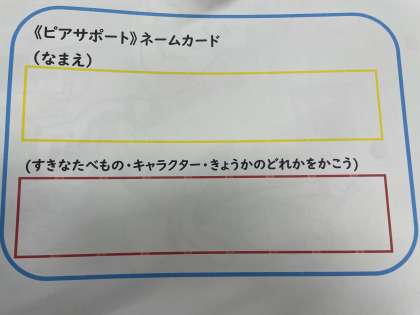 《ピアサポート》ネームカード
(なまえ)
(すきなたべもの・キャラクター・きょうかのどれかをかこう)